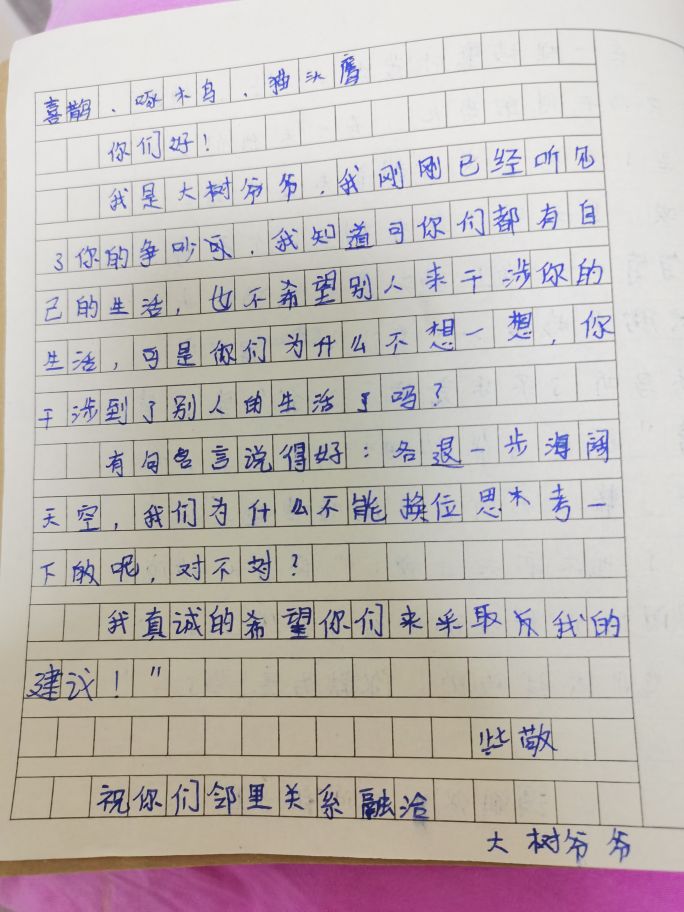 喜鹊、啄木鸟、猫头鹰
你们好!
我是大树爷爷,我刚刚已经听见
了你的争吵可,我知道可你们都有自
己的生活,也不希望别人来干涉你的
生活,可是你们为什么不想一想,你
干涉到了别人的生活了吗?
有句名言说得好:各退一步海阔
天空,我们为什么不能换位思木考一
下的呢,对不对?
我真诚的希望你们来采取反我的
建议!"
些敬
祝你们邻里关系融洽
大树爷爷